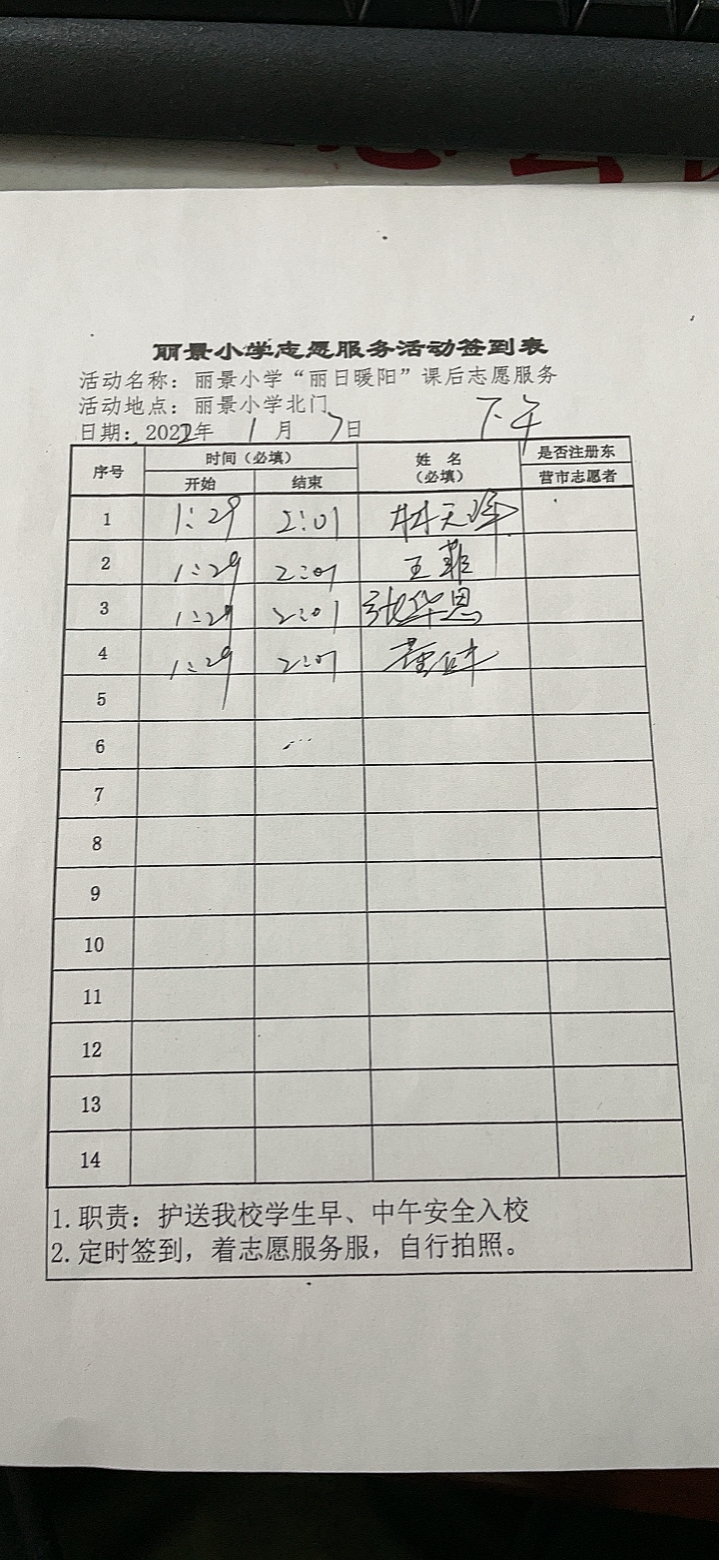 丽景小学志愿服务活动签到表
活动名称：丽景小学“丽日暖阳”课后志愿服务
活动地点：丽景小学北门
日期：2022年 1 月 7日 下午
序号 时间（必填） 姓 名（必填） 是否注册东营市志愿者
开始 结束
1 1:29 2:01
2 1:29 2:01 王菲
3 1:29 2:01 张华恩
4 1:29 2:01
5
6
7
8
9
10
11
12
13
14
1.职责：护送我校学生早、中午安全入校
2.定时签到，着志愿服务服，自行拍照。